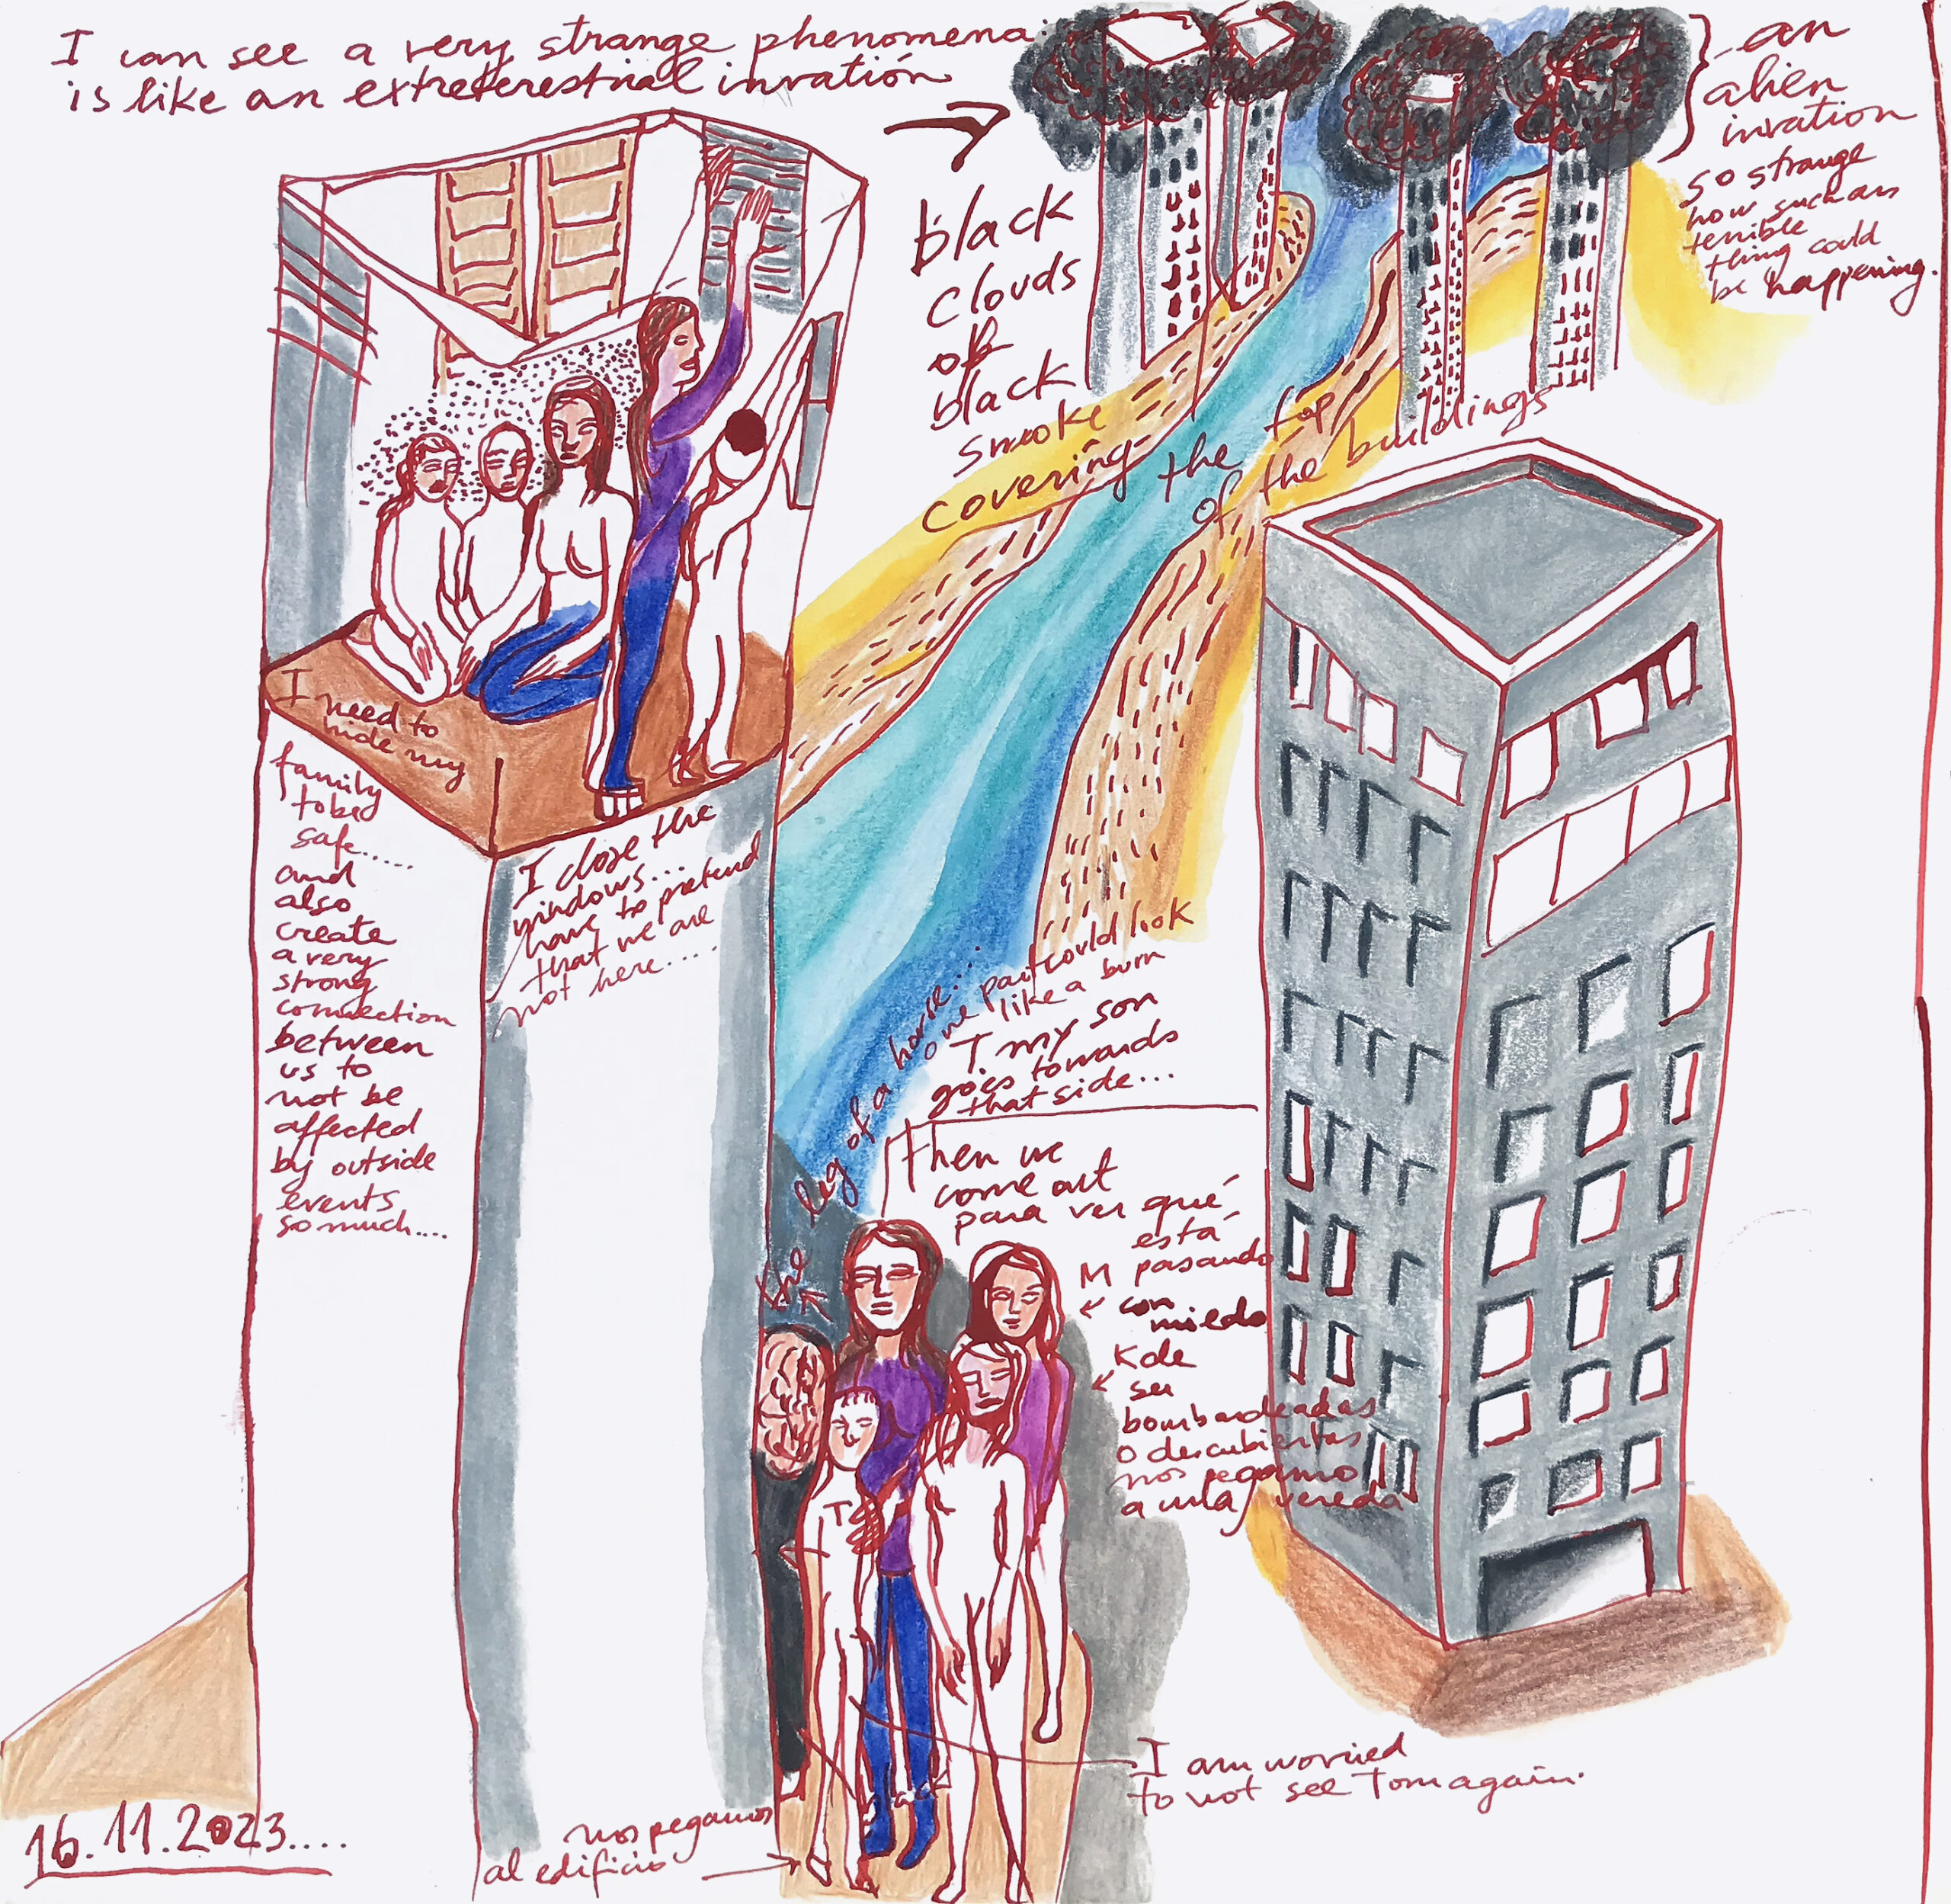 I can see a very strange phenomena:
is like an extreterestrial invratión
black
clouds
of
black
smoke
covering the top
of the buildings
an
alien
invration
so strange
how such an
terrible
thing could
be happening.
I need to
hide my
family
to be
safe.....
and
also
create
a very
strong
connection
between
us to
not be
affected
by outside
events
so much....
I close the
windows...
have to pretend
that we are
not here...
the leg of a horse...
one part could look
like a burn
T. my son
goes towards
that side...
then we
come out
para ver qué
está
M pasando
con
miedo
K de
ser
bombardeadas
o descubiertas
nos pegamo
a la vereda
T
I am worried
to not see Tom again.
nos pegamos
al edificio
16.11.2023....